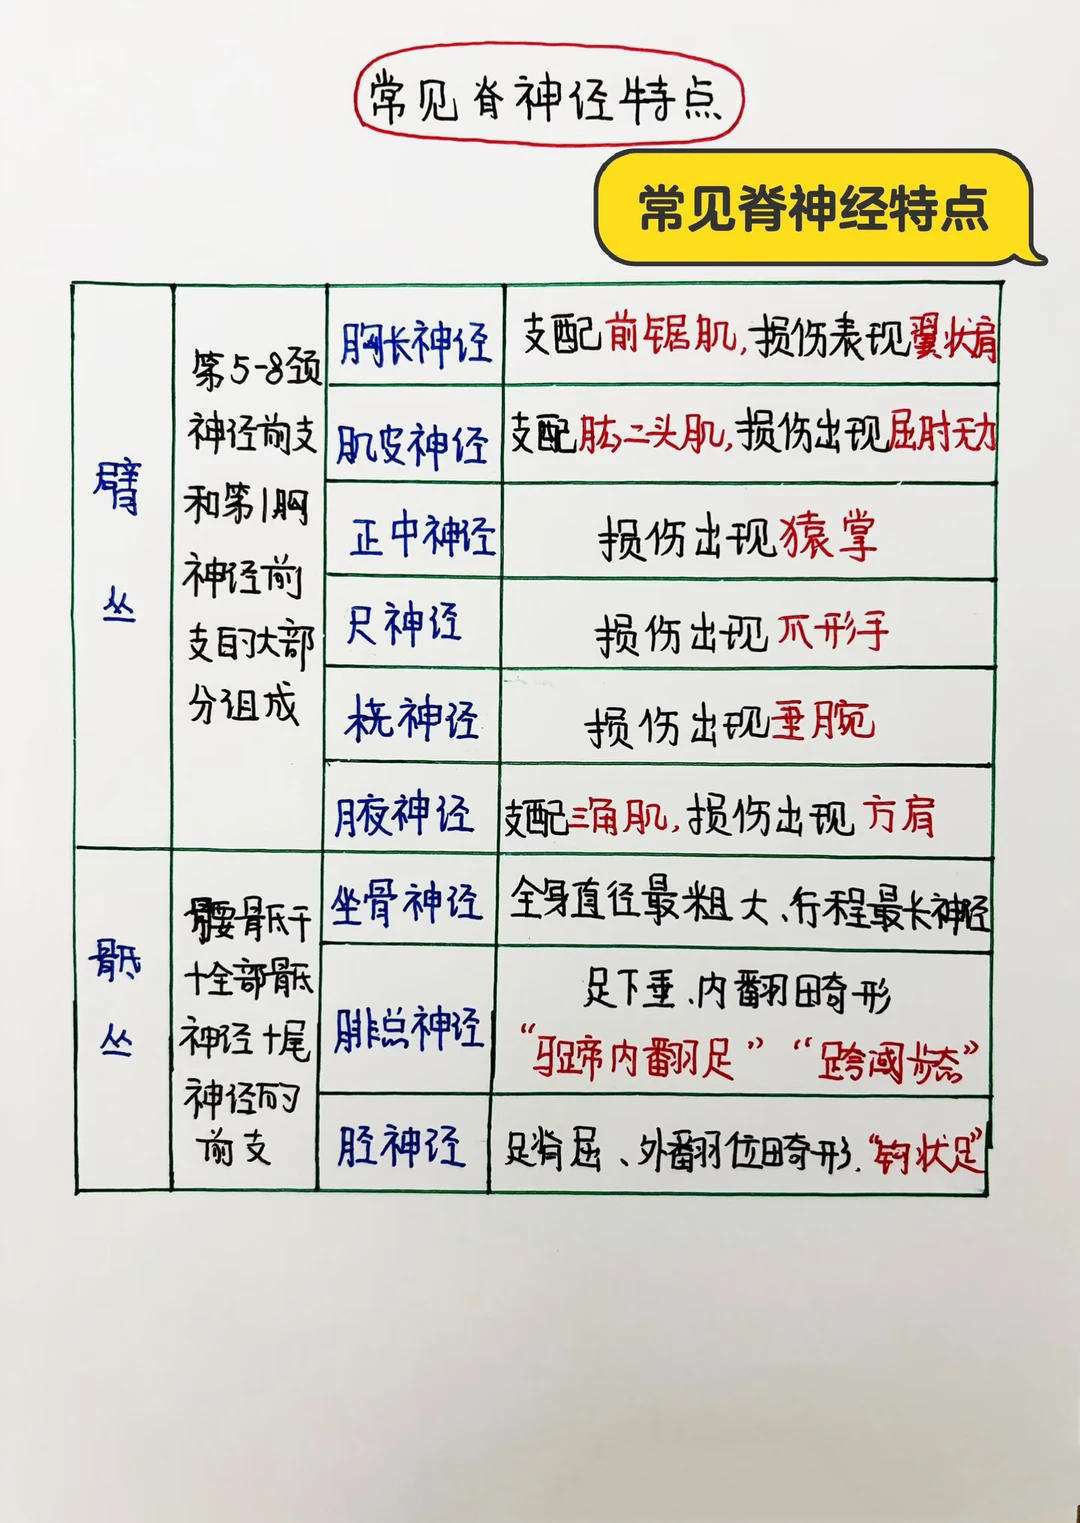 常见脊神经特点
常见脊神经特点
臂
丛
第5-8颈
神经前支
和第1胸
神经前
支的大部
分组成
胸长神经
支配前锯肌,损伤表现翼状肩
肌皮神经
支配肱二头肌,损伤出现屈肘无力
正中神经
损伤出现猿掌
尺神经
损伤出现爪形手
桡神经
损伤出现垂腕
腋神经
支配三角肌,损伤出现方肩
骶
丛
腰骶干
+全部骶
神经+尾
神经的
前支
坐骨神经
全身直径最粗大、行程最长神经
腓总神经
足下垂、内翻畸形
“马蹄内翻足”“跨阈步态”
胫神经
足背屈、外翻位畸形.“钩状足”